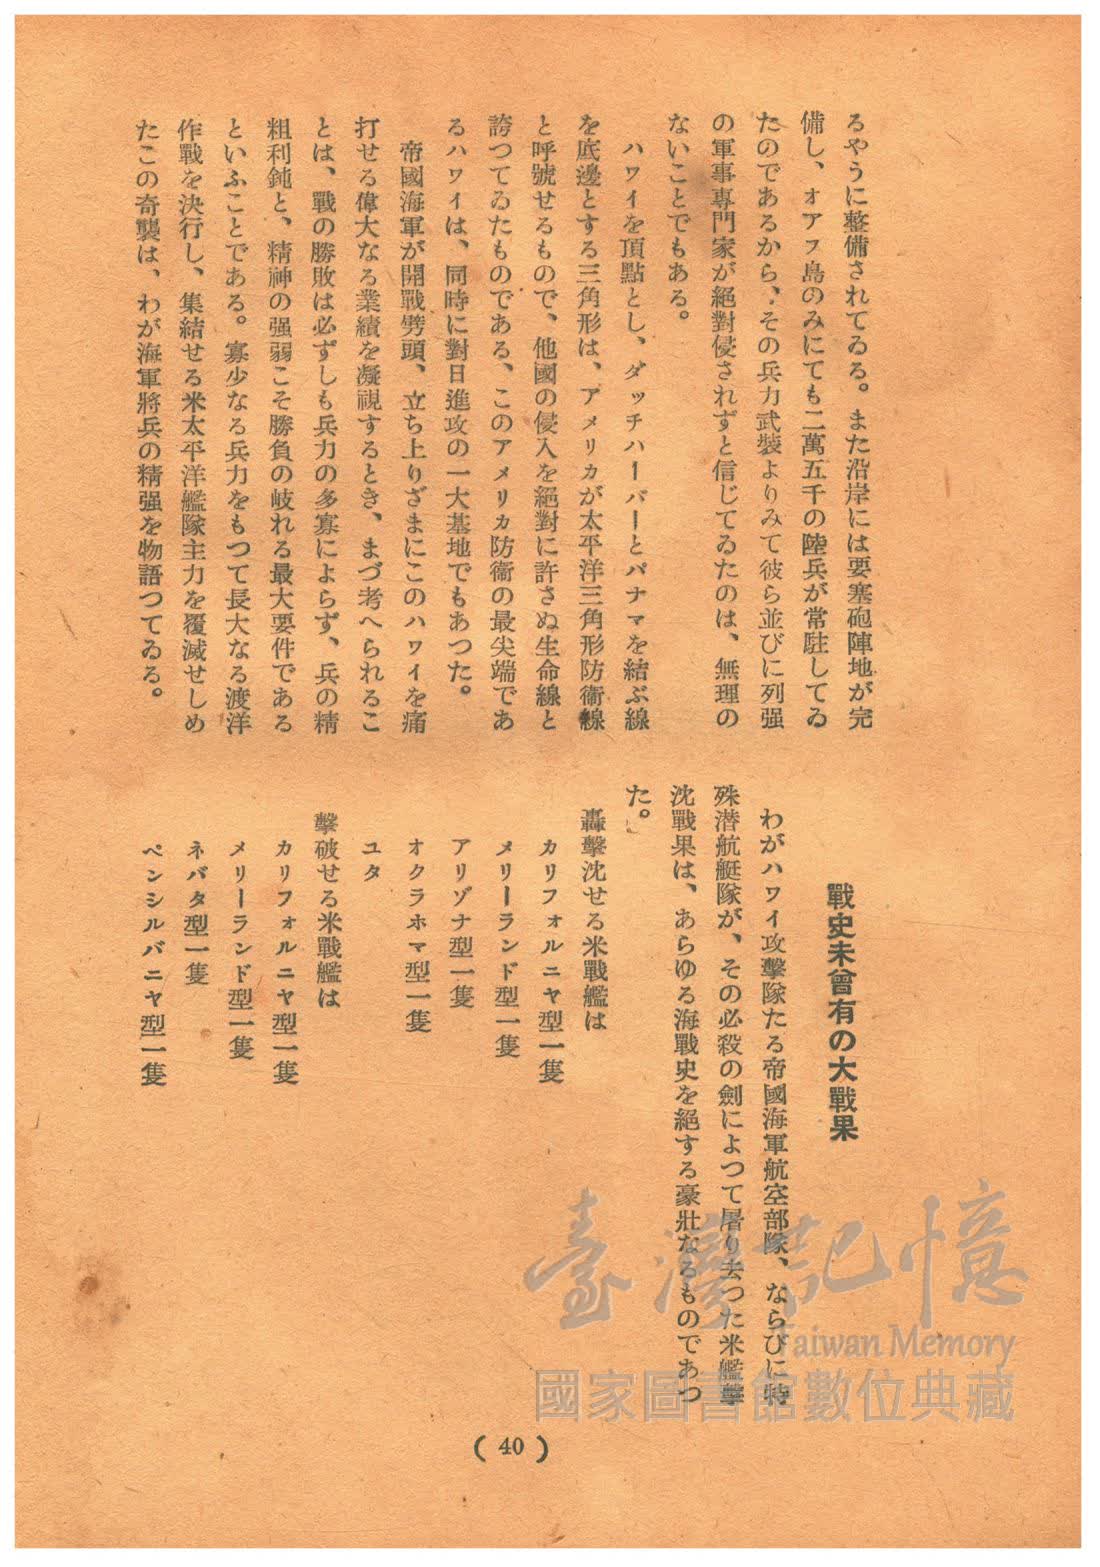 るやうに整備されてゐる。また沿岸には要塞砲陣地が完
備し、オアフ島のみにても二萬五千の陸兵が常駐してゐ
たのであるから、その兵力武裝よりみて彼ら並びに列强
の軍事專門家が絕對侵されずと信じてゐたのは、無理の
ないことでもある。
ハワイを頂點とし、ダッチハーバーとパナマを結ぶ線
を底邊とする三角形は、アメリカが太平洋三角形防衞線
と呼號せるもので、他國の侵入を絕對に許さぬ生命線と
誇つてゐたものである、このアメリカ防衞の最尖端であ
るハワイは、同時に對日進攻の一大基地でもあつた。
帝國海軍が開戰劈頭、立ち上りざまにこのハワイを痛
打せる偉大なる業績を凝視するとき、まづ考へられるこ
とは、戰の勝敗は必ずしも兵力の多寡によらず、兵の精
粗利鈍と、精神の强弱こそ勝負の岐れる最大要件である
といふことである。寡少なる兵力をもつて長大なる渡洋
作戰を決行し、集結せる米太平洋艦隊主力を覆滅せしめ
たこの奇襲は、わが海軍將兵の精强を物語つてゐる。
戰史未曾有の大戰果
わがハワイ攻擊隊たる帝國海軍航空部隊、ならびに特
殊潜航艇隊が、その必殺の劍によつて屠り去つた米艦擊
沈戰果は、あらゆる海戰史を絕する豪壯なるものであつ
た。
轟擊沈せる米戰艦は
カリフォルニヤ型一隻
メリーランド型一隻
アリゾナ型一隻
オクラホマ型一隻
ユタ
擊破せる米戰艦は
カリフォルニヤ型一隻
メリーランド型一隻
ネバタ型一隻
ペンシルバニヤ型一隻
( 40 )
臺灣記憶
Taiwan Memory
國家圖書館數位典藏